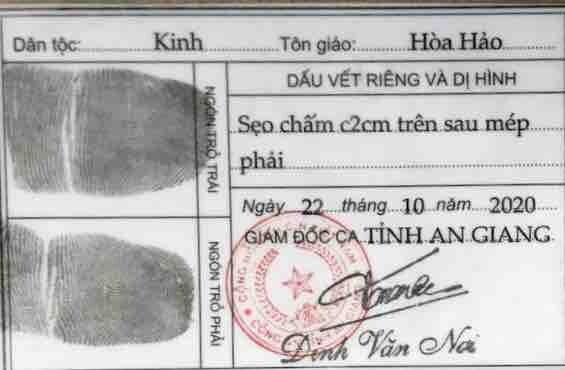 Dân tộc: Kinh Tôn giáo: Hòa Hảo
NGÓN TRỎ TRÁI
DẤU VẾT RIÊNG VÀ DỊ HÌNH
Sẹo chấm c2cm trên sau mép
phải
Ngày 22 tháng 10 năm 2020
GIÁM ĐỐC CA TỈNH AN GIANG
NGÓN TRỎ PHẢI
Đinh Văn Nơi